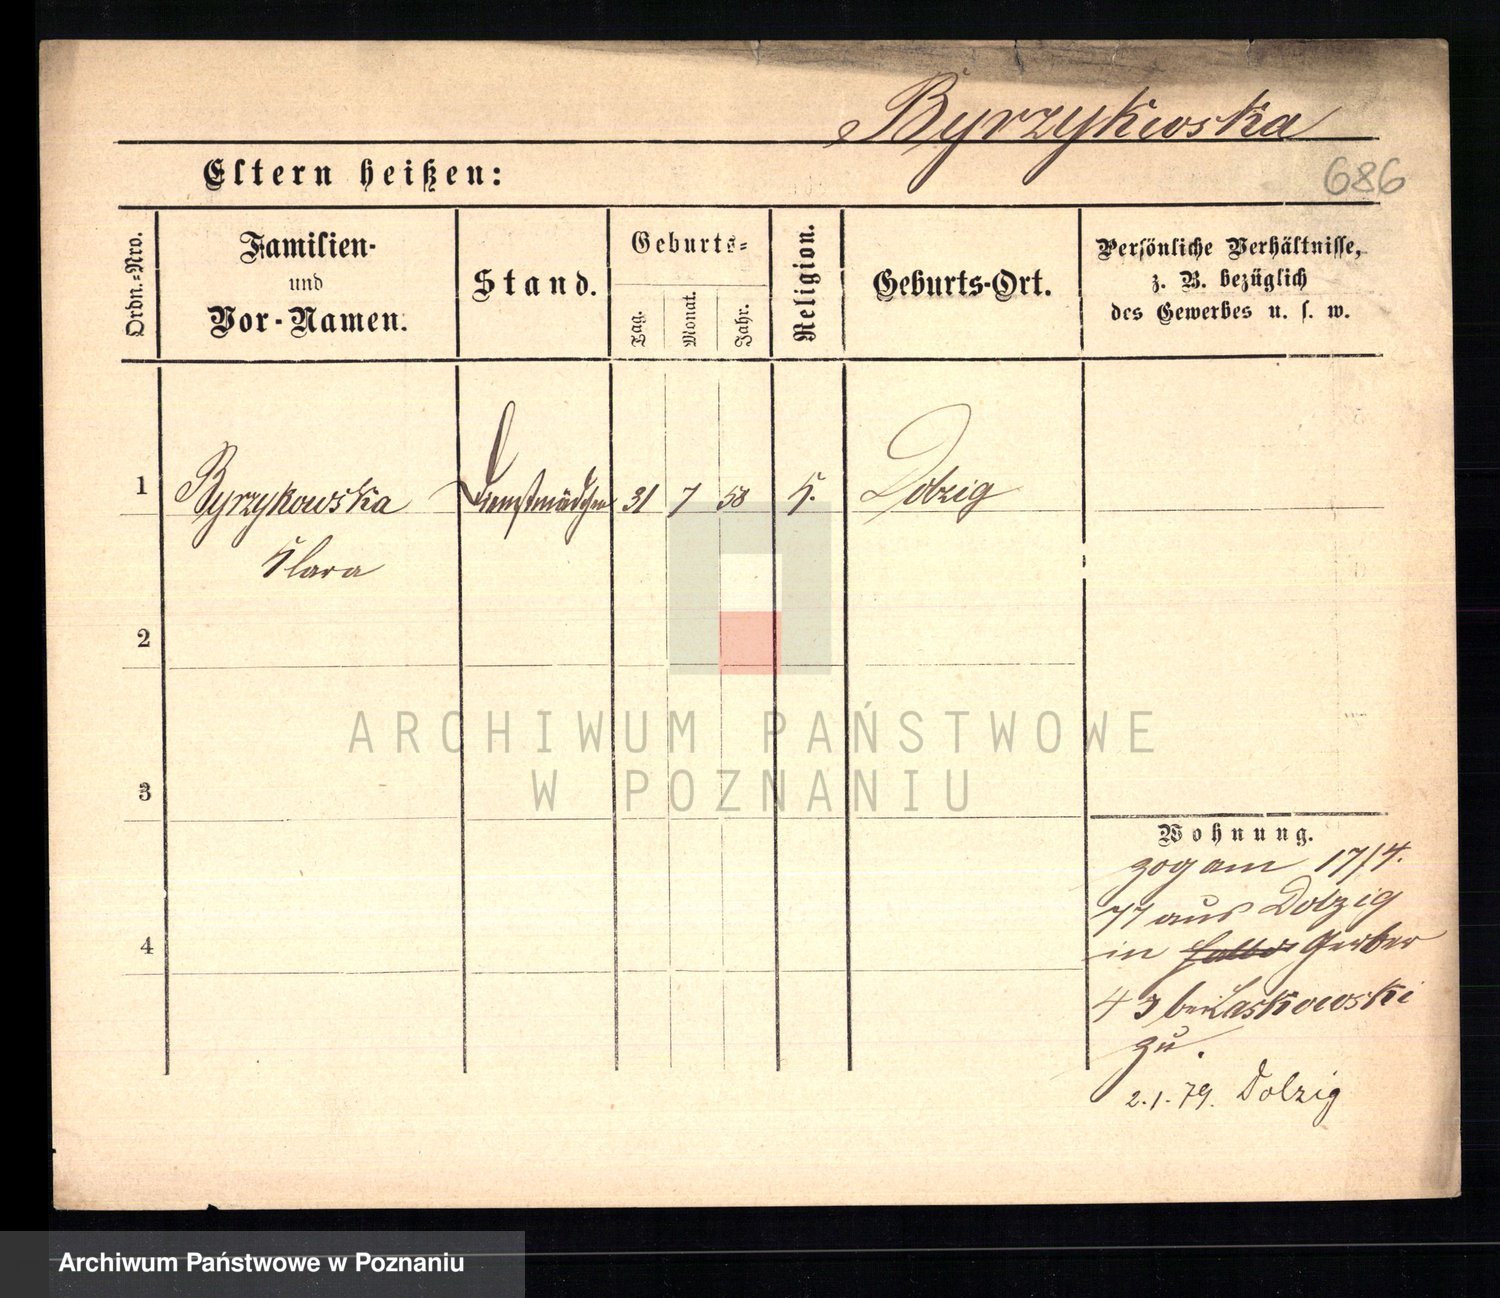 Byrzykowska
Eltern heißen:
686
Ordn.-Nro.
Familien-
und
Vor-Namen.
Stand.
Geburts-
Tag.
Monat.
Jahr.
Religion.
Geburts-Ort.
Persönliche Verhältnisse,
z. B. bezüglich
des Gewerbes u. s. w.
1
Byrzykowska Dienstmädchen 31 7 58 K. Dolzig
Klara
2
3
4
Wohnung.
zog am 17/4.
77 aus Dolzig
in Gerber
43 bei Laskowski
zu.
2.1.79. Dolzig
ARCHIWUM PAŃSTWOWE
W POZNANIU
Archiwum Państwowe w Poznaniu